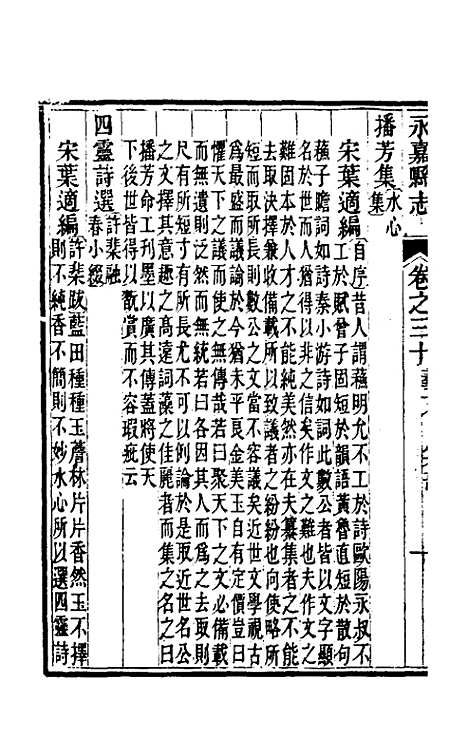 永嘉縣志 卷之三十
播芳集 水心集
宋葉適編 自序昔人謂蘓明允不工於詩歐陽永叔不
工於賦曾子固短於韻語黃魯直短於散句
蘓子瞻詞如詩秦小游詩如詞此數公者皆以文字顯
名於世而人猶得以非之信矣作文之難也夫作文之
難固本於人才之不能純美然亦在夫纂集者之不能
去取決擇兼收備載所以致議者之紛紛也向使略所
短而取所長則數公之文當不容議矣近世文學視古
為最盛而議論於今猶未平良金美玉自有定價豈曰
懼天下之議而使之無傳哉若曰聚天下之文必備載
而無遺則泛然而無統若曰各因其人而為之去取則
尺有所短寸有所長尤不可以例論於是取近世名公
之文擇其意趣之高遠詞藻之佳麗者而集之名之曰
播芳命工刋墨以廣其傳蓋將使天
下後世皆得以翫賞而不容瑕疵云
四靈詩選 許棐融春小綴
宋葉適編 許棐跋藍田種種玉薝林片片香然玉不擇
則不純香不簡則不妙水心所以選四靈詩